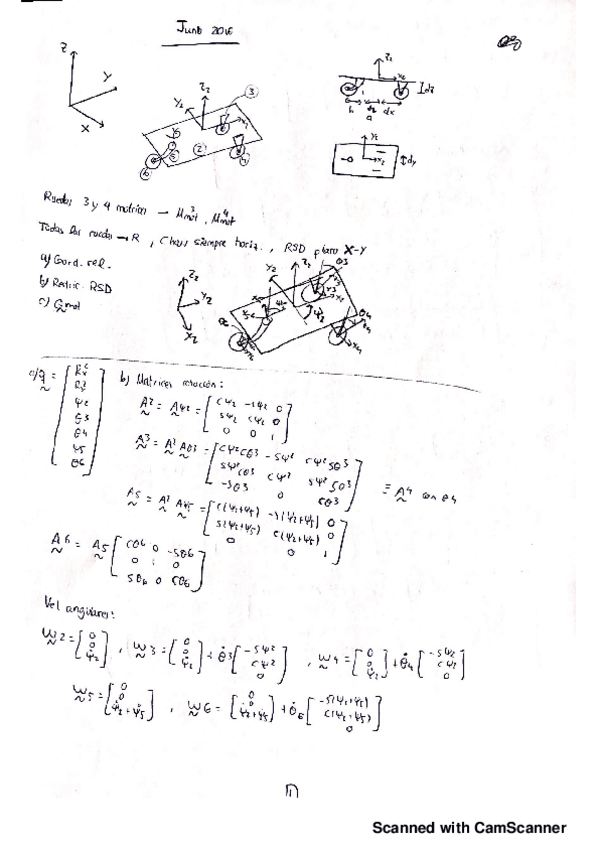 Junio 2016
Z
Y
X
Z₂
Y₂
X₂
③
②
⑤
⑥
④
Z₂
Y₂
dz
h
dx
a
Y₂
X₂
dy
Ruedas 3 y 4 motrices → M³mot, M⁴mot
Todas las ruedas → R, Chasis siempre horiz., RSD plano X-Y
a) Coord. rel.
b) Restric. RSD
c) Qmot
Z₂
Y₂
X₂
Z₂
Y₂
θ3
θ4
a) q = [Rx² Ry² ψ2 θ3 θ4 ψ5 θ6]
b) Matrices rotación:
A² = Aψ2 = [cψ2 -sψ2 0
sψ2 cψ2 0
0 0 1]
A³ = A² Aθ3 = [cψ2cθ3 -sψ2 cψ2sθ3
sψ2cθ3 cψ2 sψ2sθ3
-sθ3 0 cθ3] ≡ A⁴ con θ4
A5 = A² Aψ5 = [c(ψ2+ψ5) -s(ψ2+ψ5) 0
s(ψ2+ψ5) c(ψ2+ψ5) 0
0 0 1]
A6 = A5 [cθ6 0 -sθ6
0 1 0
sθ6 0 cθ6]
Vel angulares:
ω2 = [0 0 ψ̇2], ω3 = [0 0 ψ̇2] + θ̇3 [-sψ2 cψ2 0], ω4 = [0 0 ψ̇2] + θ̇4 [-sψ2 cψ2 0]
ω5 = [0 0 ψ̇2+ψ̇5], ω6 = [0 0 ψ̇2+ψ̇5] + θ̇6 [-s(ψ2+ψ5) c(ψ2+ψ5) 0]
Scanned with CamScanner